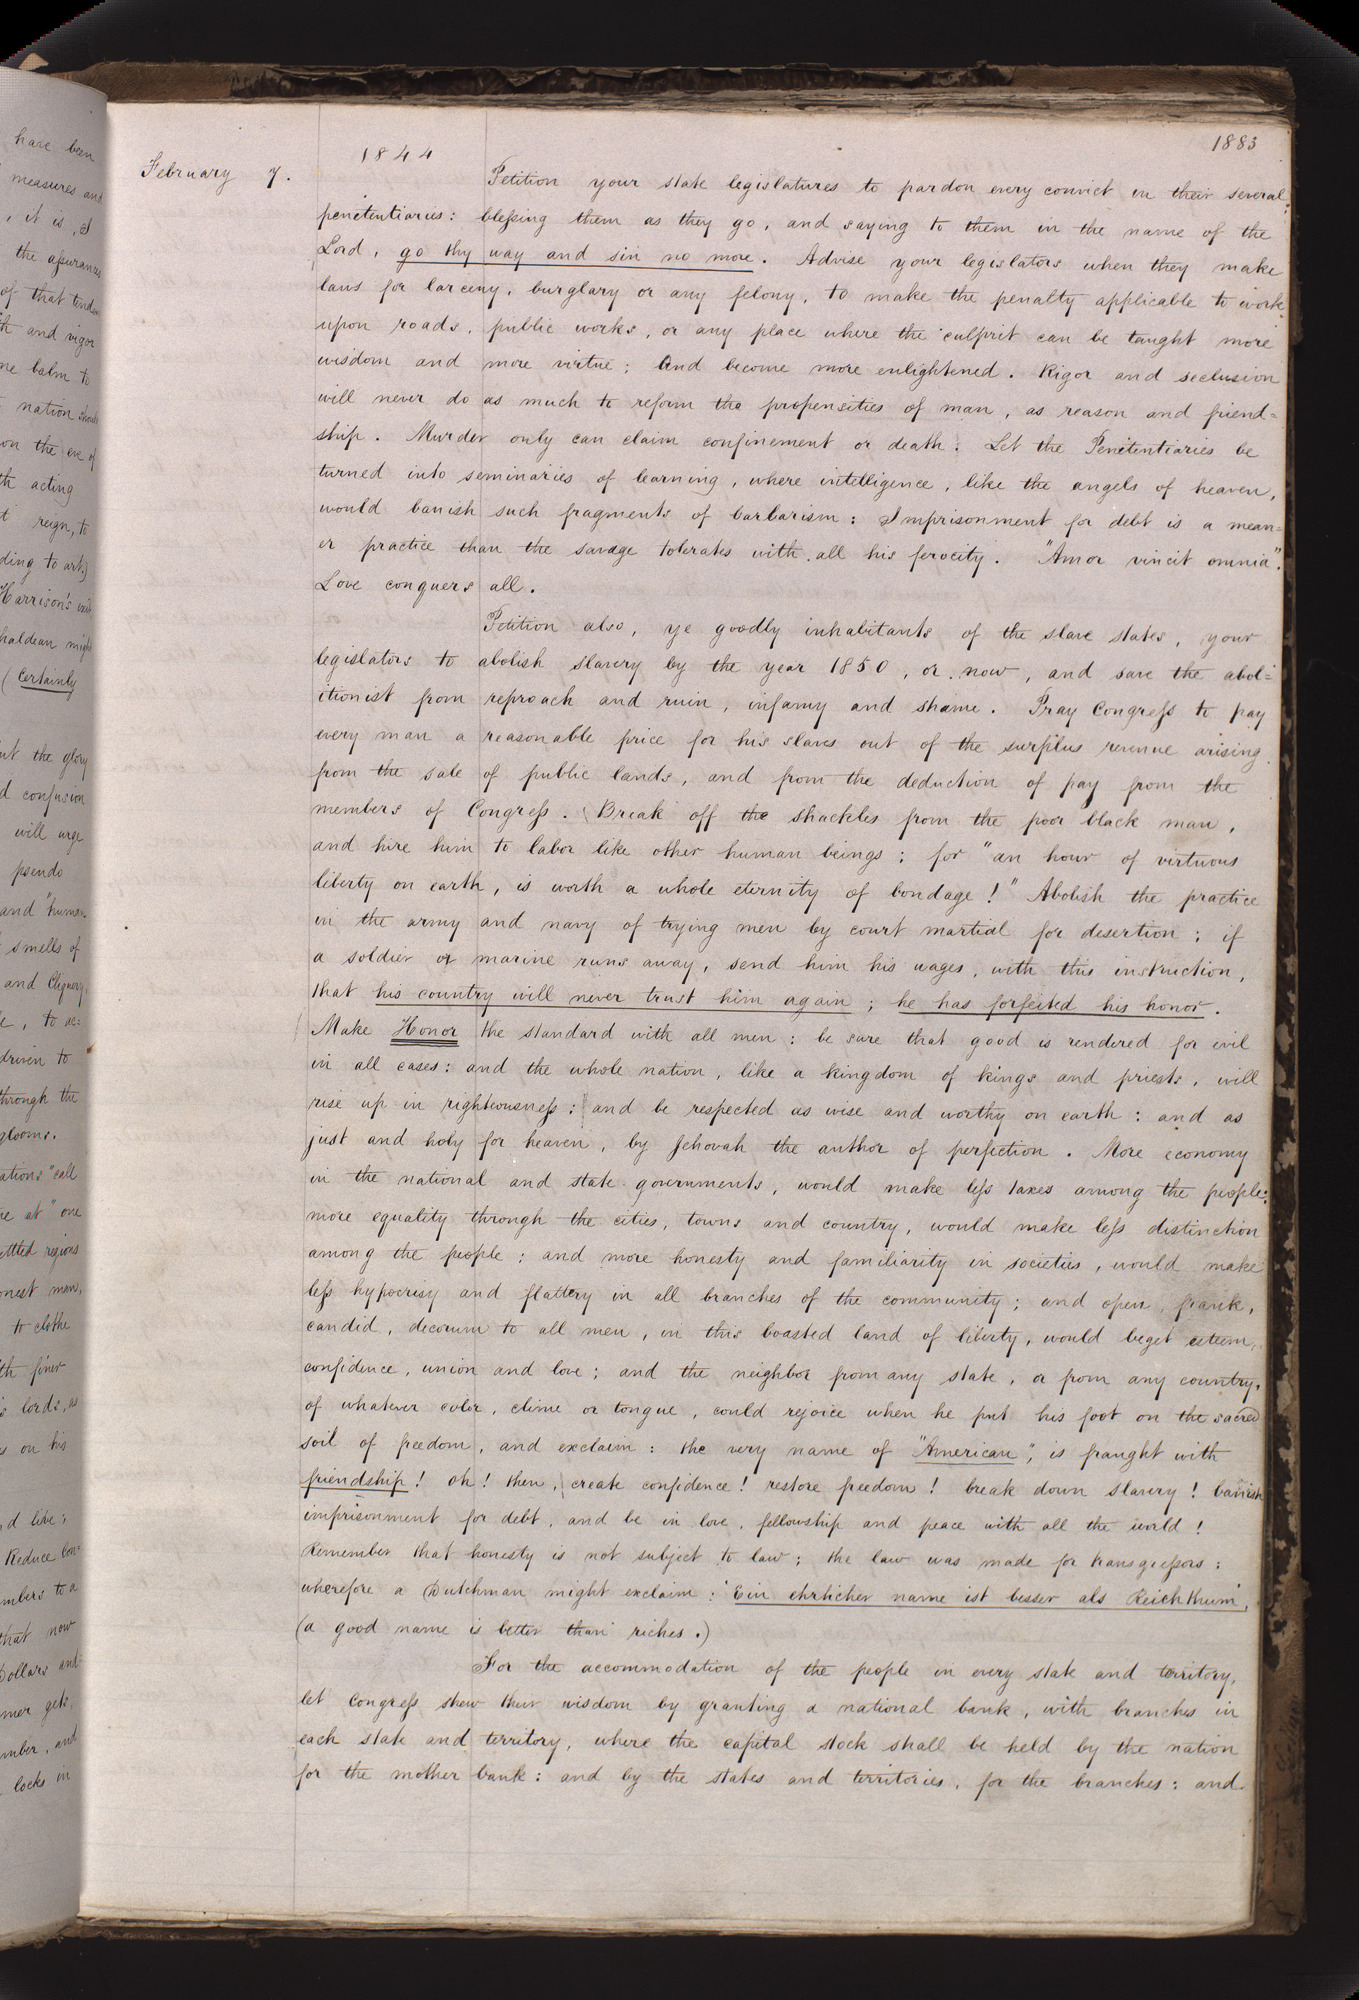 1883
1844
February 7.
Petition your state legislatures to pardon every convict in their several
penitentiaries: blessing them as they go, and saying to them in the name of the
Lord, go thy way and sin no more. Advise your legislators when they make
laws for larceny, burglary or any felony, to make the penalty applicable to work
upon roads, public works, or any place where the culprit can be taught more
wisdom and more virtue; And become more enlightened. Rigor and seclusion
will never do as much to reform the propensities of man, as reason and friend=
ship. Murder only can claim confinement or death. Let the Penitentiaries be
turned into seminaries of learning, where intelligence, like the angels of heaven,
would banish such fragments of barbarism: Imprisonment for debt is a mean=
er practice than the savage tolerates with all his ferocity. "Amor vincit omnia".
Love conquers all.
Petition also, ye goodly inhabitants of the slave states, your
legislators to abolish slavery by the year 1850, or now, and save the abol=
itionist from reproach and ruin, infamy and shame. Pray Congress to pay
every man a reasonable price for his slaves out of the surplus revenue arising
from the sale of public lands, and from the deduction of pay from the
members of Congress. Break off the shackles from the poor black man,
and hire him to labor like other human beings; for "an hour of virtuous
liberty on earth, is worth a whole eternity of bondage!" Abolish the practice
in the army and navy of trying men by court martial for desertion; if
a soldier or marine runs away, send him his wages, with this instruction,
that his country will never trust him again; he has forfeited his honor.
Make Honor the standard with all men: be sure that good is rendered for evil
in all cases: and the whole nation, like a kingdom of kings and priests, will
rise up in righteousness: and be respected as wise and worthy on earth: and as
just and holy for heaven, by Jehovah the author of perfection. More economy
in the national and state governments, would make less taxes among the people:
more equality through the cities, towns and country, would make less distinction
among the people; and more honesty and familiarity in societies, would make
less hypocrisy and flattery in all branches of the community; and open, frank,
candid, decorum to all men, in this boasted land of liberty, would beget esteem,
confidence, union and love; and the neighbor from any state, or from any country,
of whatever color, clime or tongue, could rejoice when he put his foot on the sacred
soil of freedom, and exclaim: the very name of "American", is fraught with
friendship! oh! then, create confidence! restore freedom! break down slavery! banish
imprisonment for debt, and be in love, fellowship and peace with all the world!
Remember that honesty is not subject to law; the law was made for transgressors:
wherefore a Dutchman might exclaim: "Ein ehrlicher name ist besser als Reichthum",
(a good name is better than riches.)
For the accommodation of the people in every state and territory,
let Congress shew their wisdom by granting a national bank, with branches in
each state and territory, where the capital stock shall be held by the nation
for the mother bank: and by the states and territories, for the branches: and
have been
measures and
, it is, I
the assurances
of that
th and vigor
me balm to
nation should
on the eve of
th acting
reign, to
ding to art.)
Harrison's
haldean might
(Certainly
ut the glory
d confusion
will urge
pseudo
and "human
smells of
and
e, to ac=
driven to
through the
glooms.
ations "call
re at" one
ettled regions
onest men,
to clothe
th finer
lords, as
s on his
d live;
Reduce Con=
mbers to a
that now
Dollars and
mer gets,
mber, and
locks in